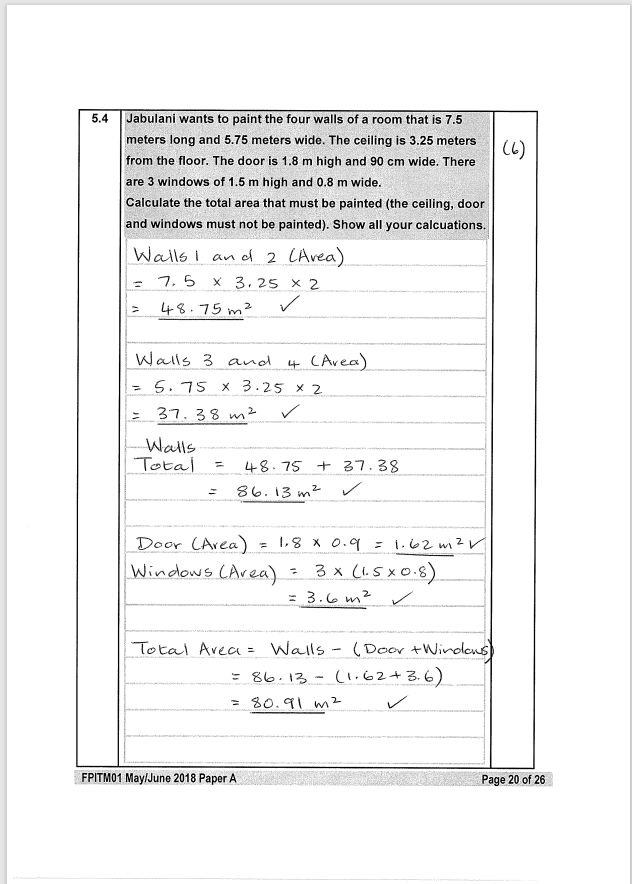 5.4 Jabulani wants to paint the four walls of a room that is 7.5
meters long and 5.75 meters wide. The ceiling is 3.25 meters
from the floor. The door is 1.8 m high and 90 cm wide. There
are 3 windows of 1.5 m high and 0.8 m wide.
Calculate the total area that must be painted (the ceiling, door
and windows must not be painted). Show all your calcuations.
(6)
Walls 1 and 2 (Area)
= 7.5 x 3.25 x 2
= 48.75 m² ✓
Walls 3 and 4 (Area)
= 5.75 x 3.25 x 2
= 37.38 m² ✓
Walls
Total = 48.75 + 37.38
= 86.13 m² ✓
Door (Area) = 1.8 x 0.9 = 1.62 m² ✓
Windows (Area) = 3 x (1.5 x 0.8)
= 3.6 m² ✓
Total Area = Walls - (Door + Windows)
= 86.13 - (1.62 + 3.6)
= 80.91 m² ✓
FPITM01 May/June 2018 Paper A
Page 20 of 26